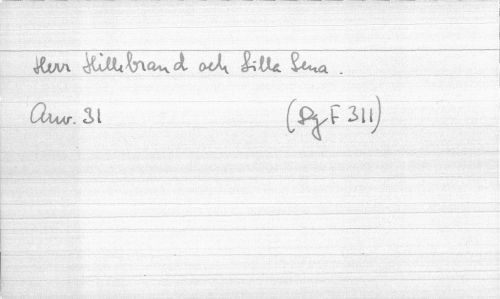 Herr Hillebrand och Lilla Lena.
Arw. 31 (Dg F 311)